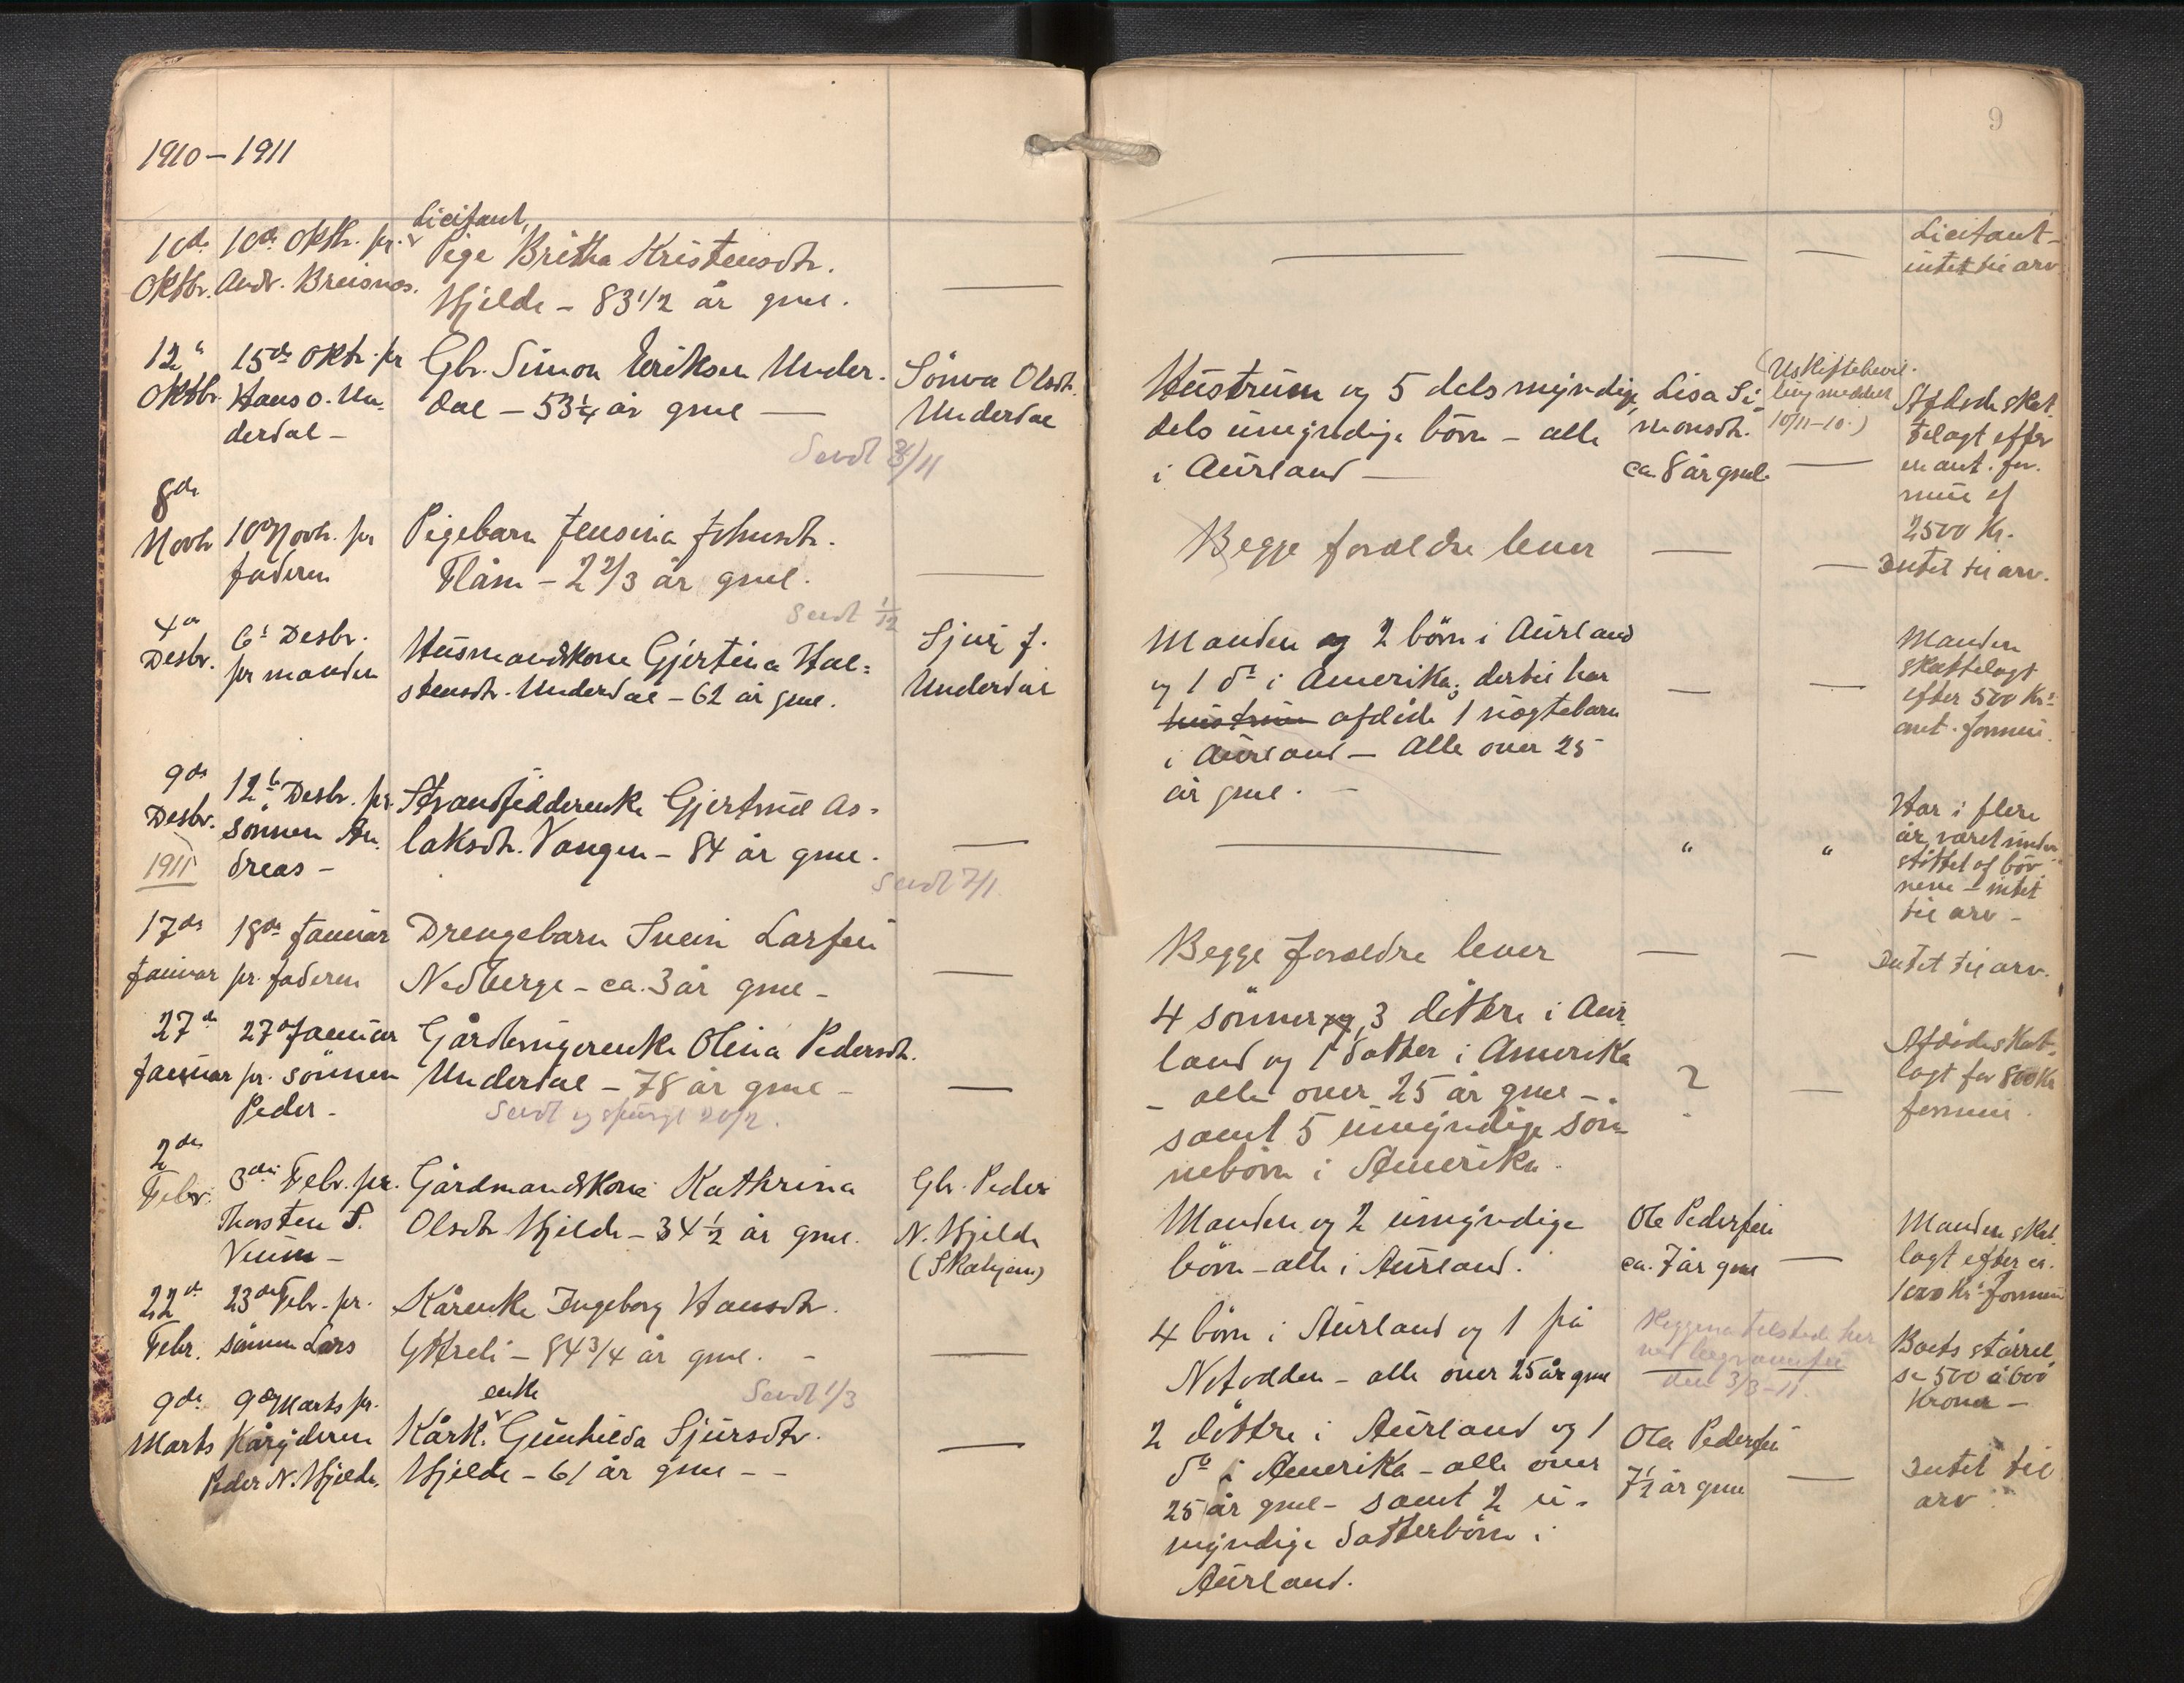 1910 – 1911
9
10de
Oktbr.
10de Oktbr. pr.
Andr. Breisnes.
Licitant,
Pige Britha Kristensdtr.
Hjelde – 83 1/2 år gml.
Licitant –
intet til arv.
12"
Oktbr.
15de Oktr. pr
Hans O. Un-
derdal –
Gbr. Simon Eriksen Under-
dal – 53 1/4 år gml –
Sendt 3/11
Sönva Olsdt.
Underdal
Hustrum og 5 dels myndige,
dels umyndige börn – alle
i Aurland –
Lisa Si-
monsdtr.
ca 8 år gml.
(Uskiftebevil-
ling meddelt
10/11-10.)
Afdöde skat-
telagt efter
en ant. for-
mue af
2500 Kr.
8de
Novbr
10de Novbr. pr
faderen
Pigebarn Jensina Johnsdtr.
Flåm – 2 2/3 år gml.
Begge foræeldre lever
Intet til arv.
Sendt 1/12
4de
Desbr.
6te Desbr.
pr manden
Husmandskone Gjertina Hal-
stensdtr. Underdal – 62 år gml.
Sjur J.
Underdal
Manden og 2 börn i Aurland
og 1 do i Amerika; dertil har
hustruen afdöde 1 nögtebarn
i Aurland – Alle over 25
år gml. –
Manden
skattelagt
efter 500 Krs
ant. formue.
9de
Desbr.
12te Desbr. pr.
sönnen An-
dreas –
Strandsidderenke Gjertrud As-
laksdtr. Vangen – 84 år gml.
Sendt 7/1
Har i flere
år været under-
stöttet af bör-
nene – intet
til arv –
1911
17de
Januar
18de Januar
pr. faderen
Drengebarn Svein Larsen
Nedberge – ca. 3 år gml –
Begge forældre lever
Intet til arv.
27de
Januar
27de Januar
pr. sönnen
Peder –
Gårdbrugerenke Olina Pedersdtr.
Underdal – 78 år gml –
Sendt og spurgt 20/2.
4 sönner og 3 döttre i Aur-
land og 1 datter i Amerika
– alle over 25 år gml –.
samt 5 umyndige sön-
nebörn i Amerika.
?
Afdöde skat-
lagt for 800 Kr
formue.
2den
Febr.
3die Febr. pr.
Thorsten S.
Vinm –
Gårdmandskone Kathrina
Olsdtr Hjelde – 34 1/2 år gml.
Gbr. Peder
N. Hjelde
(Skahjem)
Manden og 2 umyndige
börn – alle i Aurland.
Ole Pedersen
ca. 7 år gml
Manden skat-
lagt efter ca.
1000 Krs formue
22de
Febr.
23de Febr. pr.
sönnen Lars
Kårenke Ingeborg Hansdtr.
Ytreli – 84 3/4 år gml. –
Sendt 1/3
4 börn i Aurland og 1 på
Notodden – alle over 25 år gml
Begge tilstede her
ved begravelsen
den 3/3-11.
Boets störrel-
se 500 à 600
Kroner –
9de
Marts
9de Marts pr.
Kåryderen
Peder N. Hjelde.
enke
Kårk. Gunhilda Sjursdtr.
Hjelde – 61 år gml – –
2 döttre i Aurland og 1
do i Amerika – alle over
25 år gml – samt 2 u-
myndige datterbörn i
Aurland.
Ole Pedersen
7 1/2 år gml
Intet til
arv.